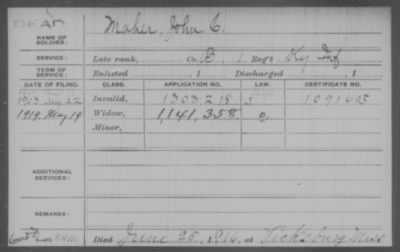 DEAD
NAME OF SOLDIER: Maher, John C.
SERVICE: Late rank, Co. B, 1 Reg't Ky Inf
TERM OF SERVICE: Enlisted , 1 Discharged , 1
DATE OF FILING. CLASS. APPLICATION NO. LAW. CERTIFICATE NO.
22 Invalid, 1303218
1919, May 19 Widow, 1,141,358
Minor,
ADDITIONAL SERVICES:
REMARKS:
Died June 25, 1916, at Vicksburg Miss